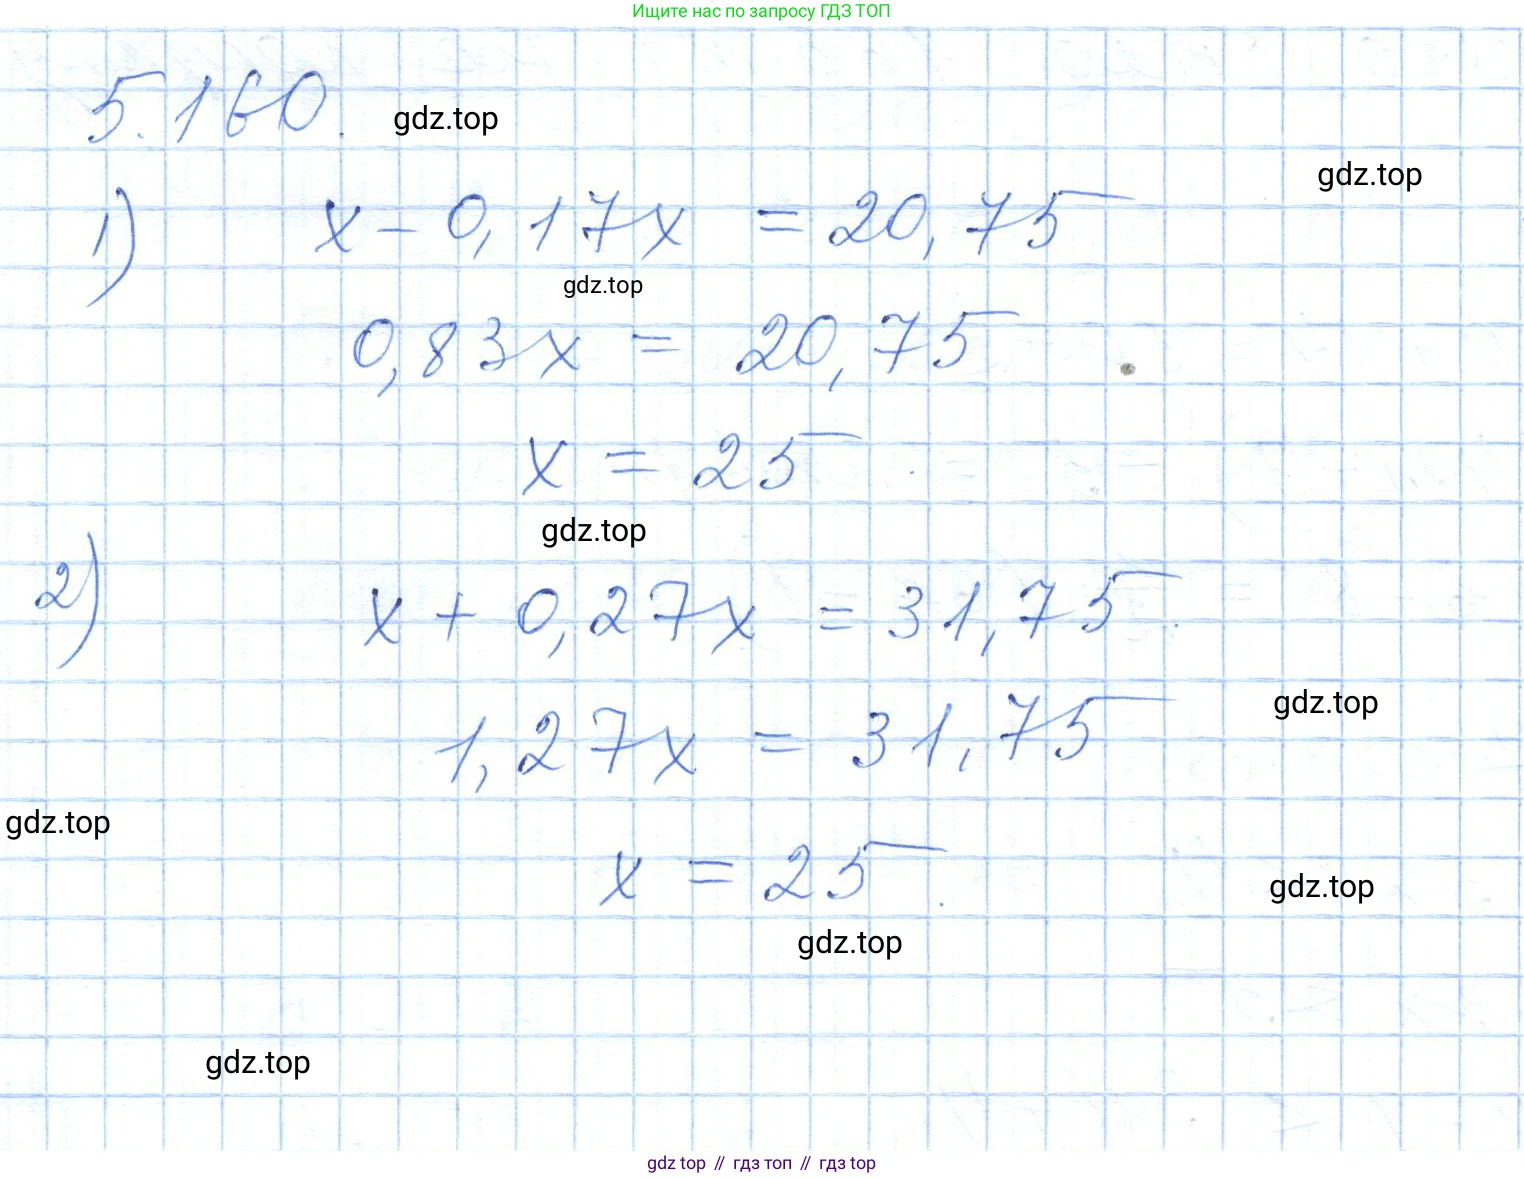 Ищите нас по запросу ГДЗ ТОП
5.160.
gdz.top
gdz.top
1) x - 0,17x = 20,75
gdz.top
0,83x = 20,75
x = 25
gdz.top
2) x + 0,27x = 31,75.
gdz.top
1,27x = 31,75
gdz.top
x = 25.
gdz.top
gdz.top
gdz.top
gdz top // гдз топ // гдз top